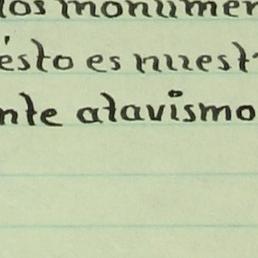 los monumen
ésto es nuest
nte atavismo